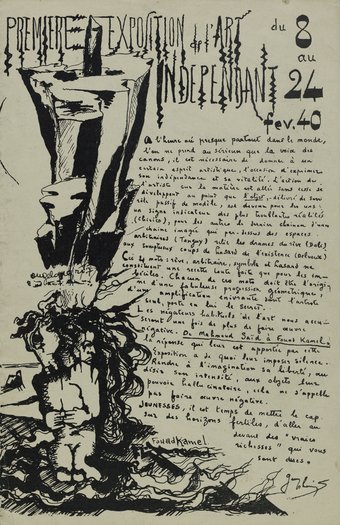 PREMIERE EXPOSITION de L'ART
INDEPENDANT
du 8
au
24
fev. 40
A l'heure où presque partout dans le monde,
l'on ne prend au sérieux que la voix des
canons, il est nécessaire de donner à un
certain esprit artistique, l'occasion d'exprimer
son indépendance et sa vitalité. L'action de
l'artiste sur la matière est allée sans cesse se
développer au point que l'objet, délivré de son
rôle passif de modèle, est devenu pour les uns
un signe indicateur des plus troublantes réalités
pour les autres le premier chaînon d'une
chaîne imagée qui par-dessus des espaces
arbitraires (Tanguy) relie les drames du rêve (Dali)
aux somptueux coups de hasard de l'existence
Ces 4 mots: rêve, arbitraire, symbole et hasard ne
constituent une recette toute faite que pour des
Chacun de ces mots doit être l'origine
d'une fabuleuse progression géométrique,
d'une implication enivrante dont l'artiste
seul, porte en lui le secret.
Les négateurs habituels de l'art nous accuseront
une fois de plus de faire œuvre
négative. De Mahmoud Saïd à Fouad Kamel,
la réponse qui leur est apportée par cette
Exposition a de quoi leur imposer silence.
Rendre à l'imagination sa liberté, au
désir sa virulence, aux objets leur
pouvoir hallucinatoire, cela ne s'appelle
pas faire œuvre négative.
JEUNESSES, il est temps de mettre le cap
sur des horizons fertiles, d'aller au
devant des "vraies
richesses" qui vous
sont dues.
Fouad Kamel